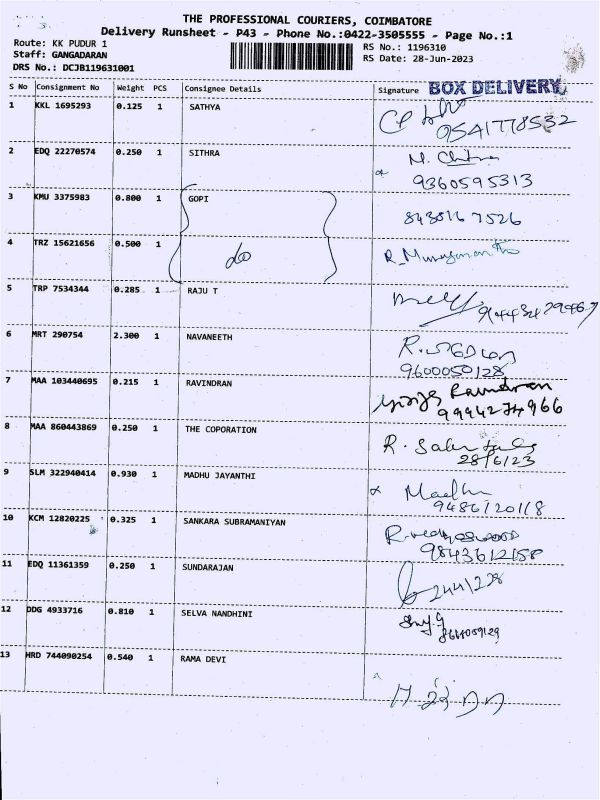 THE PROFESSIONAL COURIERS, COIMBATORE
Delivery Runsheet - P43 - Phone No.:0422-3505555 - Page No.:1
Route: KK PUDUR 1 RS No.: 1196310
Staff: GANGADARAN RS Date: 28-Jun-2023
DRS No.: DCJB119631001
S No Consignment No Weight PCS Consignee Details Signature BOX DELIVERY
1 KKL 1695293 0.125 1 SATHYA
9541778532
2 EDQ 22270574 0.250 1 SITHRA M. Chitra
9360595313
3 KMU 3375983 0.800 1 GOPI 8438167526
4 TRZ 15621656 0.500 1 do
5 TRP 7534344 0.285 1 RAJU T
6 MRT 290754 2.300 1 NAVANEETH
9600050128
7 MAA 103440695 0.215 1 RAVINDRAN Ravindran
9994274966
8 MAA 860443869 0.250 1 THE COPORATION R.
28/6/23
9 SLM 322940414 0.930 1 MADHU JAYANTHI Madhu
9486120118
10 KCM 12820225 0.325 1 SANKARA SUBRAMANIYAN
9843612158
11 EDQ 11361359 0.250 1 SUNDARAJAN 2441228
12 DDG 4933716 0.810 1 SELVA NANDHINI
13 HRD 744090254 0.540 1 RAMA DEVI